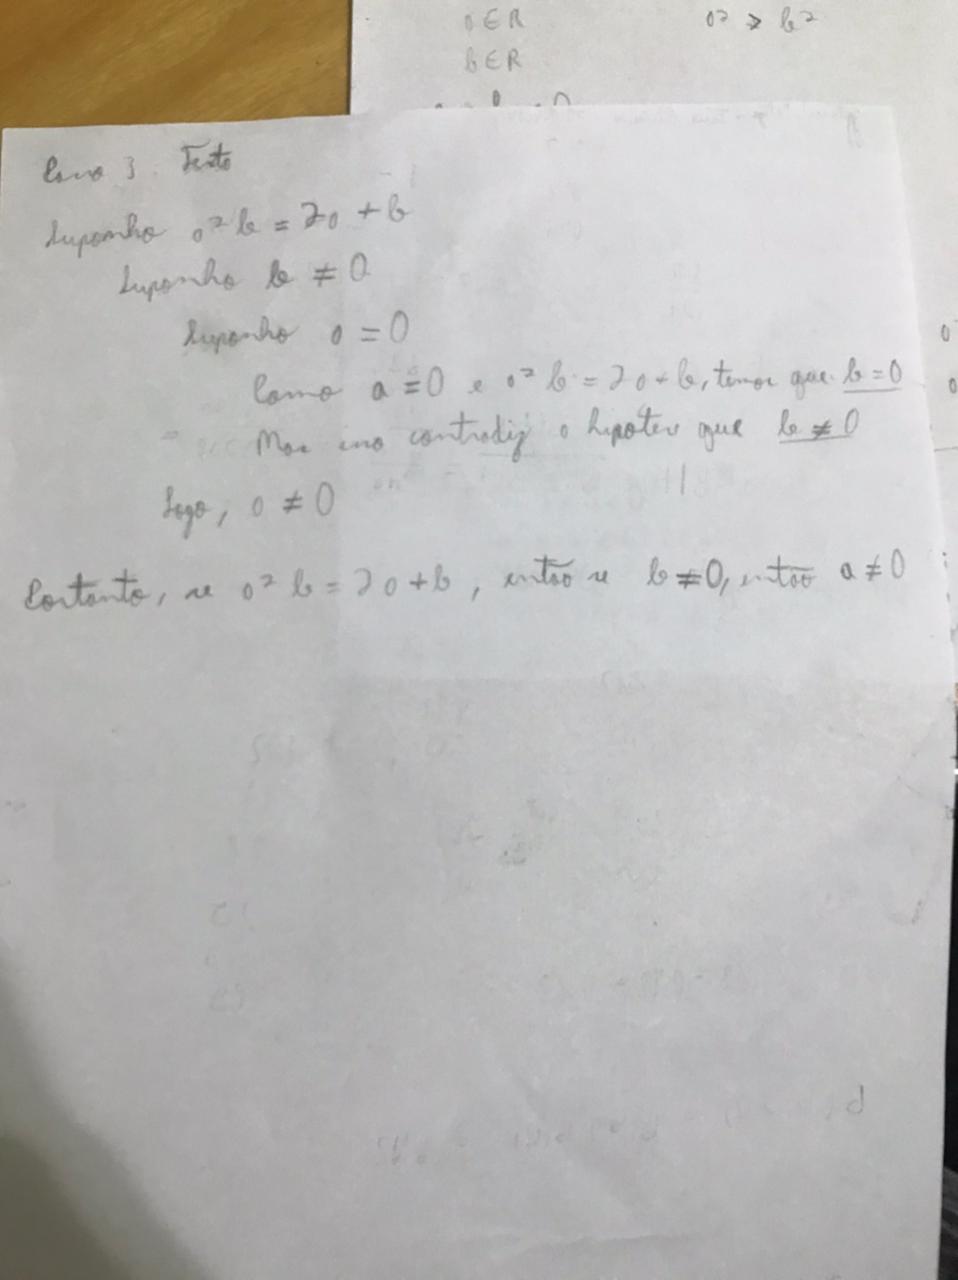 a ∈ R a² > b²
b ∈ R
Caso 3. Texto
Suponho a²b = 2a + b
Suponho b ≠ 0
Suponho a = 0
Como a = 0 e a²b = 2a + b, temos que b = 0
Mas isso contradiz a hipótese que b ≠ 0
Logo, a ≠ 0
Portanto, se a²b = 2a + b, então se b ≠ 0, então a ≠ 0